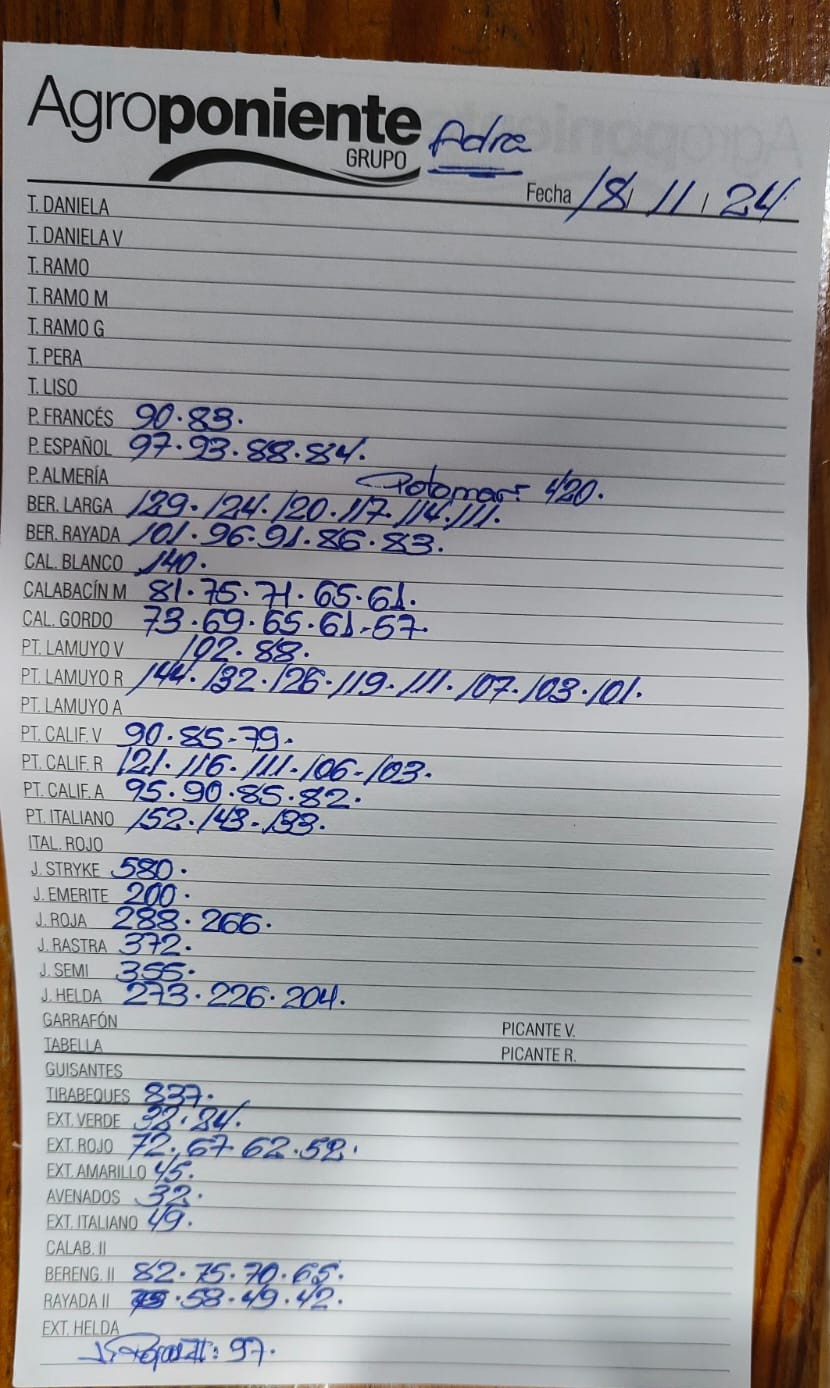 Agroponiente
GRUPO
Adra
Fecha 18/11/24
T. DANIELA
T. DANIELA V
T. RAMO
T. RAMO M
T. RAMO G
T. PERA
T. LISO
P. FRANCÉS 90.83.
P. ESPAÑOL 97.93.88.84.
P. ALMERÍA
420.
BER. LARGA 129.124.120.117.114.111.
BER. RAYADA 101.96.91.86.83.
CAL. BLANCO 140.
CALABACÍN M 81.75.71.65.61.
CAL. GORDO 73.69.65.61.57.
PT. LAMUYO V 102.88.
PT. LAMUYO R 144.132.126.119.111.107.103.101.
PT. LAMUYO A
PT. CALIF. V 90.85-79.
PT. CALIF. R 121.116.111.106-103.
PT. CALIF. A 95.90.85.82.
PT. ITALIANO 152.143.133.
ITAL. ROJO
J. STRYKE 580.
J. EMERITE 200.
J. ROJA 288.266.
J. RASTRA 372.
J. SEMI 355.
J. HELDA 273.226.204.
GARRAFÓN PICANTE V.
TABELLA PICANTE R.
GUISANTES
TIRABEQUES 837.
EXT. VERDE 32.24.
EXT. ROJO 72.67 62.52.
EXT. AMARILLO 45.
AVENADOS 32.
EXT. ITALIANO 49.
CALAB. II
BERENG. II 82.75.70.65.
RAYADA II 58.49.42.
EXT. HELDA
J. Roja II: 97.